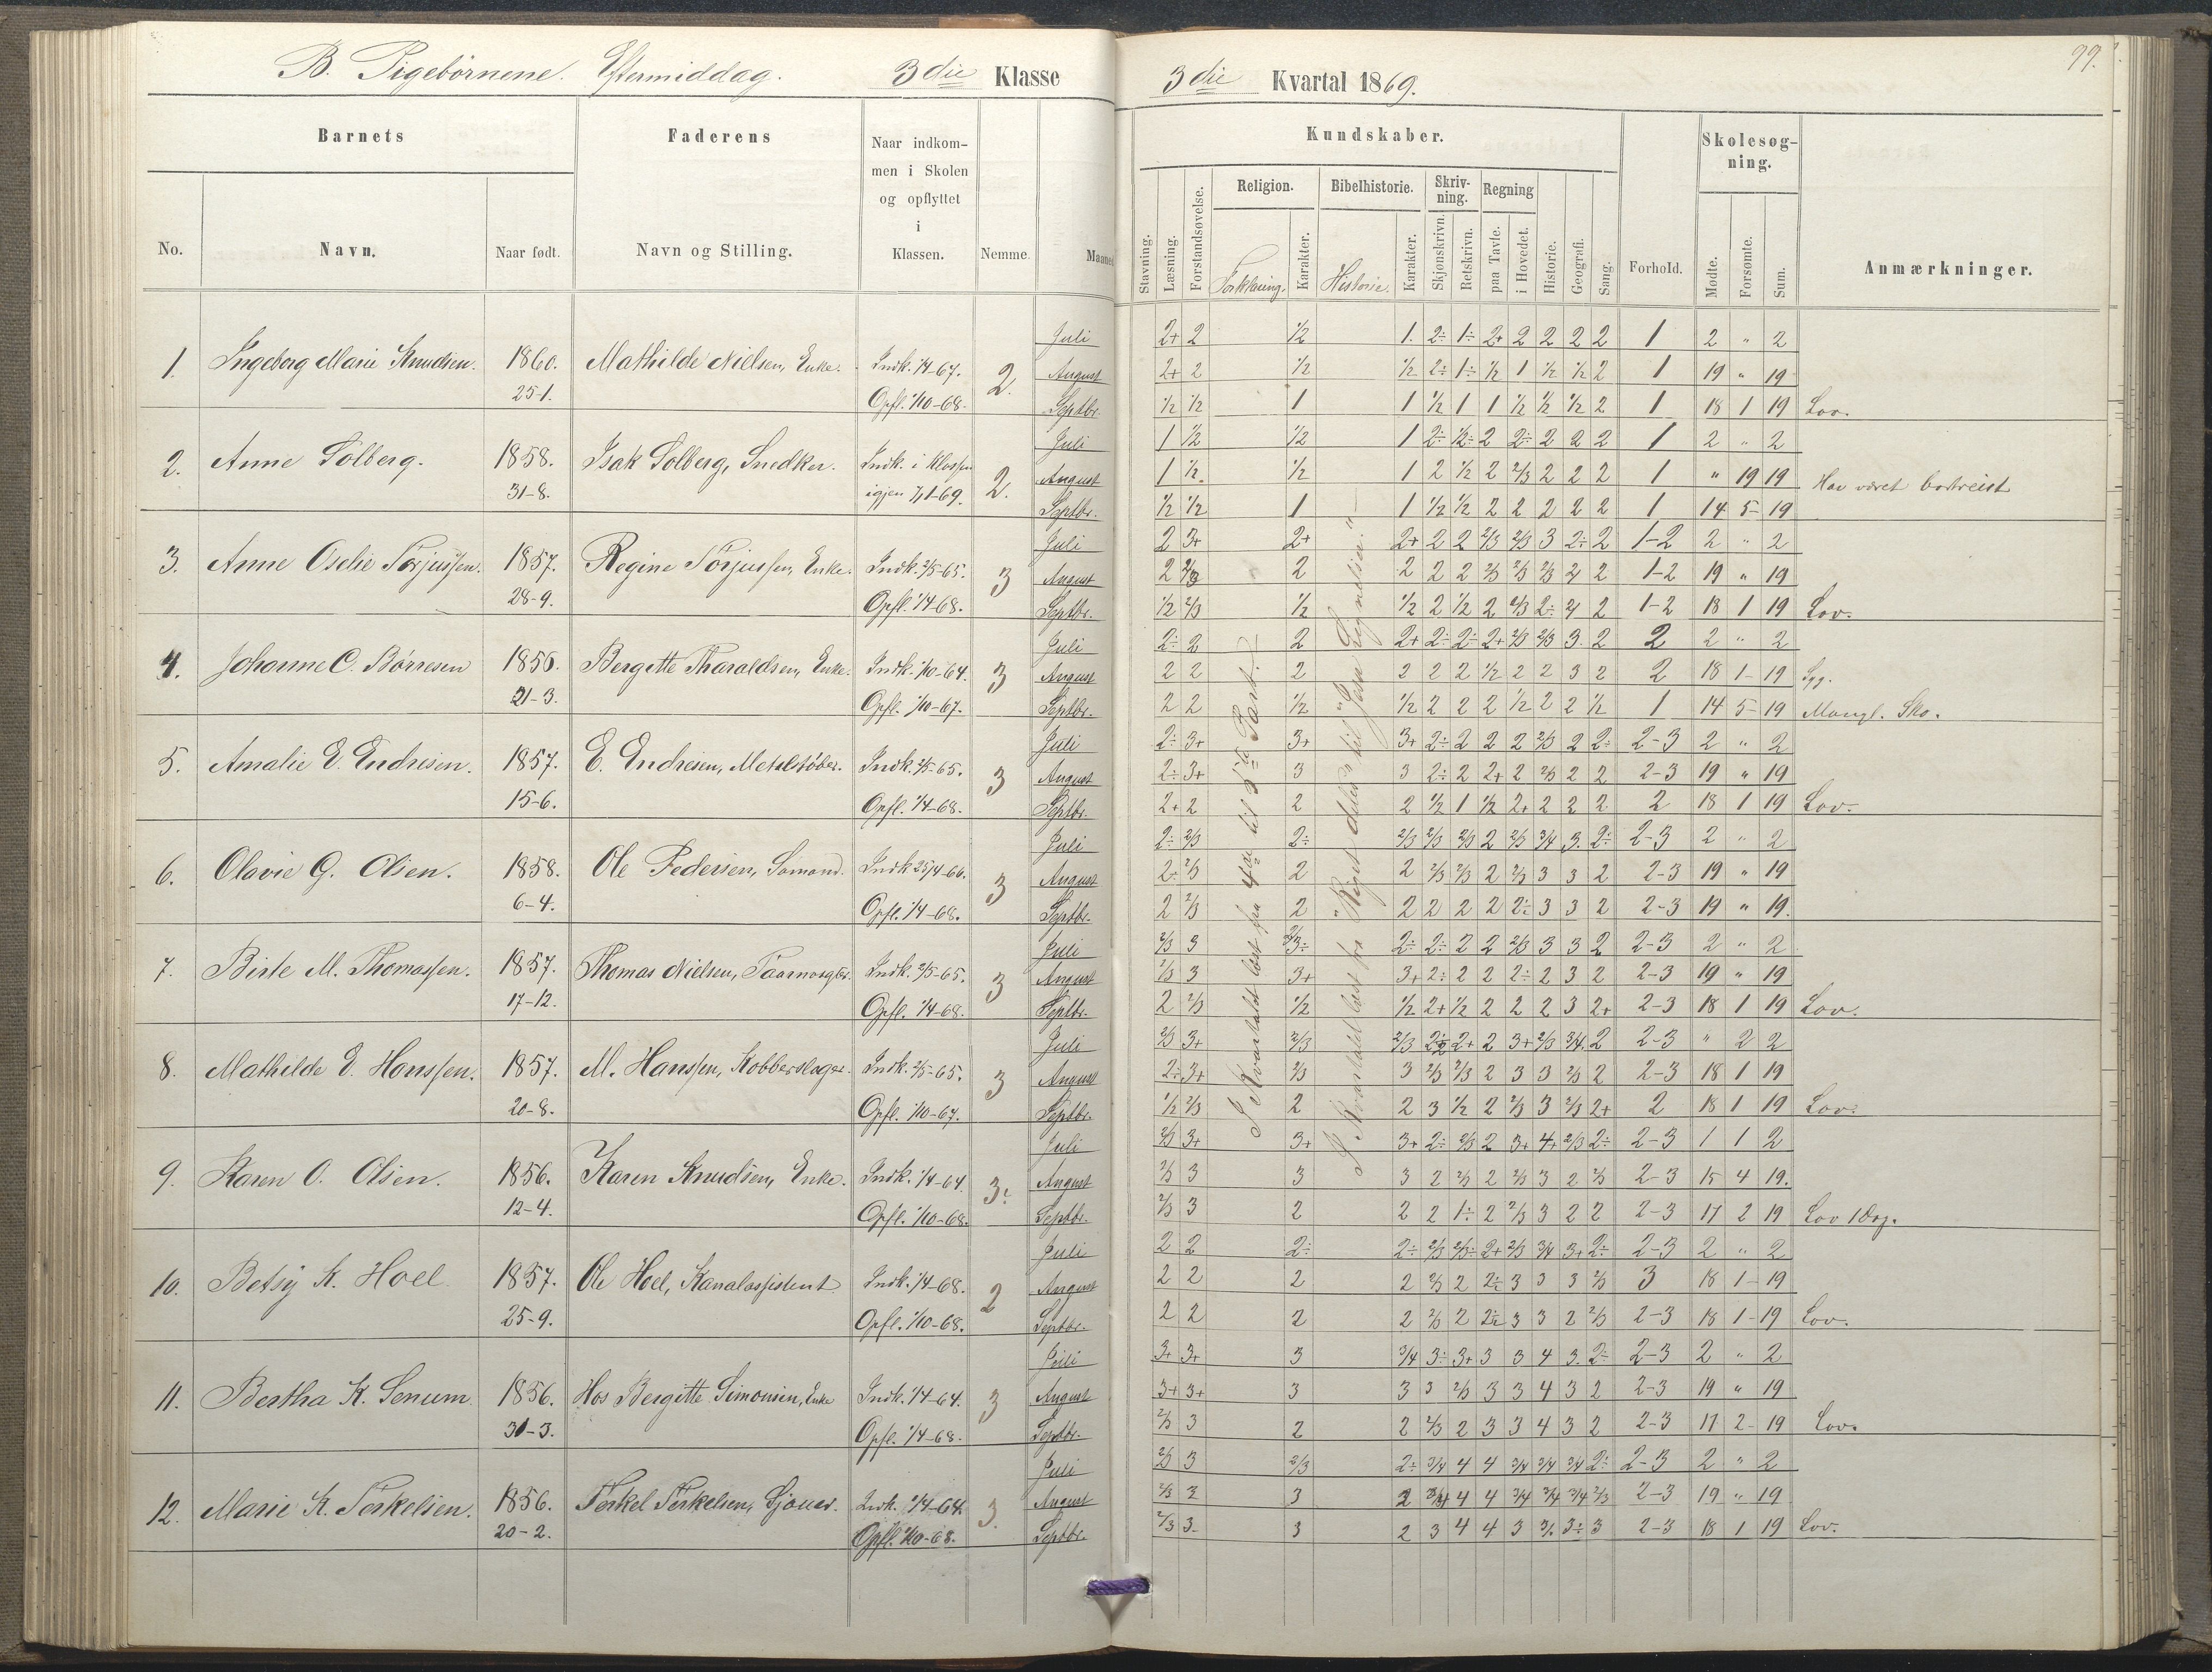 B. Pigebørnene. Eftermiddag. 3die Klasse
3die Kvartal 1869.
99.
Barnets Faderens Naar indkommen i Skolen og opflyttet i Klassen. Nemme. Maaned
No. Navn. Naar født. Navn og Stilling.
Kundskaber. Skolesøgning.
Stavning. Læsning. Forstandsøvelse. Religion. Forklaring. Karakter. Bibelhistorie. Historie. Karakter. Skrivning. Skjønskrivn. Retskrivn. Regning paa Tavle. i Hovedet. Historie. Geografi. Sang. Forhold. Mødte. Forsømte. Sum. Anmærkninger.
1. Ingeborg Marie Knudsen. 1860. Mathilde Nielsen, Enke. Indk. 1/4-67. 2. Juli 2+ 2 1/2 1. 2÷ 1÷ 2+ 2 2 2 2 1 2 " 2
25-1. August 2+ 2 1/2 1/2 2÷ 1÷ 1/2 1 1/2 1/2 2 1 19 " 19
Opfl. 1/10-68. Septbr. 1/2 1/2 1 1 1/2 1 1 1/2 1/2 1/2 2 1 18 1 19 Lov.
2. Anne Solberg. 1858. Isak Solberg, Snedker. Indk. i Klassen 2. Juli 1 1/2 1/2 1 2÷ 1/2÷ 2 2÷ 2 2 2 1 2 " 2
31-8. igjen 7/1-69. August 1 1/2 1/2 1 2 1/2 2 2/3 2 2 2 1 " 19 19 Har været bortreist
Septbr. 1/2 1/2 1 1 1/2 1/2 2 2 2 2 2 1 14 5 19
3. Anne Oselie Torjussen. 1857. Regine Torjussen, Enke. Indk. 2/5-65. 3 Juli 2 3+ 2+ 2+ 2 2 2/3 2/3 3 2÷ 2 1-2 2 " 2
28-9. August 2 2/3 2 2 2 2 2/3 2/3 2/3 2 2 1-2 19 " 19
Opfl. 1/4-68. Septbr. 1/2 2/3 1/2 1/2 2 1/2 2 2/3 2÷ 2 2 1-2 18 1 19 Lov.
4. Johanne C. Børresen 1856. Bergitte Tharaldsen, Enke. Indk. 1/10-64. 3 Juli 2÷ 2 2 2+ 2÷ 2÷ 2+ 2/3 2/3 3. 2 2 2 " 2
21-3. August 2 2 2 2 2 2 1/2 2 2 3 2 2 18 1 19 Syg.
Opfl. 1/10-67. Septbr. 2 2 1/2 1/2 2 2 2 1/2 2 2 1/2 1 14 5 19 Mangl. Sko.
5. Amalie E. Endresen. 1857. E. Endresen, Metalstøber. Indk. 2/5-65. 3 Juli 2÷ 3+ 3+ 3+ 2÷ 2 2 2 2/3 2 2÷ 2-3 2 " 2
15-6. August 2÷ 3+ 3 3 2÷ 2 2+ 2 2/3 2 2 2-3 19 " 19
Opfl. 1/4-68. Septbr. 2+ 2 2 2 1/2 1 1/2 2+ 2 2 2 2 18 1 19 Lov.
6. Olavie G. Olsen. 1858. Ole Pedersen, Sømand. Indk 25/4-66. 3 Juli 2÷ 2/3 2÷ 2/3 2/3 2/3 2 2/3 3/4 3. 2÷ 2-3 2 " 2
6-4. August 2÷ 2/3 2 2 2/3 2/3 2 2/3 3 3 2 2-3 19 " 19
Opfl. 1/4-68. Septbr. 2 2/3 2 2 2 2 2 2÷ 3 3 2 2-3 19 " 19.
7. Birte M. Thomassen. 1857. Thomas Nielsen, Indk. 2/5-65. 3 Juli 2/3 3 2/3÷ 2÷ 2÷ 2 2 2/3 3 3 2 2-3 2 " 2
17-12. August 2/3 3 3+ 3+ 2÷ 2 2 2÷ 2 3 2 2-3 19 " 19
Opfl. 1/4-68. Septbr. 2 2/3 1/2 1/2 2+ 1/2 2 2 2 3 2+ 2-3 18 1 19 Lov.
8. Mathilde E. Hanssen. 1857. M. Hanssen, Kobberslager. Indk. 2/5-65. 3 Juli 2/3 3+ 2/3 2/3 2÷ 2+ 2 3+ 2/3 3/4. 2 2-3 " 2 2
20-8. August 2÷ 3+ 2/3 3 2/3 2/3 2 3 3 2/3 2 2-3 18 1 19
Opfl. 1/10-67. Septbr. 1/2 2/3 2 2 3 1/2 2 2/3 3 2/3 2+ 2 18 1 19 Lov.
9. Karen O. Olsen. 1856. Karen Knudsen, Enke. Indk. 1/4-64 3÷ Juli 2/3 3+ 3+ 3+ 2÷ 2/3 2 3+ 4+ 2/3 2÷ 2-3 1 1 2
12-4. August 2/3 3 3 3 2 2/3 2 2/3 3 2 2/3 2-3 15 4 19.
Opfl. 1/10-68. Septbr. 2/3 3 2 2 2 1÷ 2 2/3 3 2 2 2-3 17 2 19 Lov 1 Dag.
10. Betsy K. Hoel 1857. Ole Hoel, Kanalassistent Indk. 1/4-68. 2 Juli 2 2 2÷ 2÷ 2/3 2/3÷ 2+ 2/3 3/4 3+ 2÷ 2-3 2 " 2
25-9. August 2 2 2 2 2/3 2 2÷ 3 3 3 2/3 3 18 1 19
Opfl. 1/10-68. Septbr. 2 2 2 2 2/3 2 2÷ 3 3 2 2/3 2-3 18 1 19 Lov.
11. Bertha K. Senum 1856. Hos Bergitte Simonsen, Enke Indk. 1/4-64. 3 Juli 3+ 3+ 3 3/4 3÷ 3+ 3 3 4 3. 2÷ 2-3 2 " 2
31-3. August 3+ 3+ 3 3 3 2/3 3 3 4 3 2 2-3 19 " 19
Opfl. 1/4-68. Septbr. 2/3 3 2 2 2/3 2 3 3 4 3 2 2-3 17 2 19 Lov.
12. Marie K. Terkelsen. 1856. Terkel Terkelsen, Sjouer. Indk. 1/4-64. 3. Juli 2/3 3 2/3 2÷ 3/4 4 4 3/4 3/4 3/4 2÷ 2-3 2 " 2
20-2. August 2/3 3 3 2 3/4 4 4 3/4 3/4 3/4 2/3 2-3 19 " 19
Opfl. 1/10-68. Septbr. 2/3 3 3 2 3 4 4 3 3÷ 3 2-3 18 1 19 Lov.
I Kvartalet læst fra 4de til 5te Part.
I Kvartalet læst fra "Riget deles" til "Jesu Lignelser."